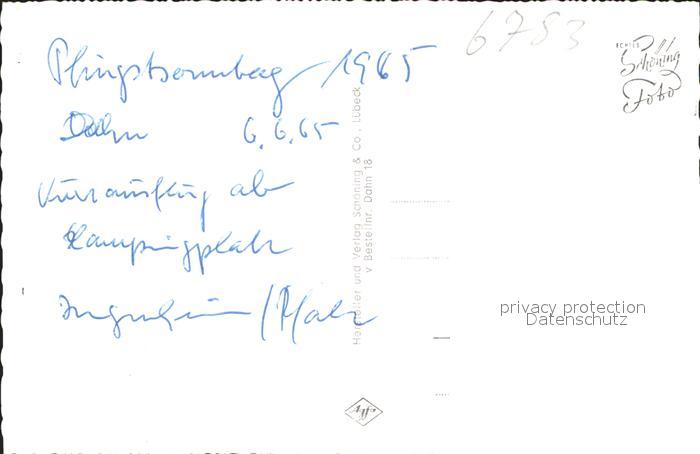 Pfingstsonntag 1965
Dahn 6.6.65
Kurzausflug ab
Kampingplatz
Ingenheim/Pfalz
6753
ECHTES
Schöning
Foto
Hersteller und Verlag Schöning & Co., Lübeck
v Bestellnr. Dahn 18
privacy protection
Datenschutz
Agfa